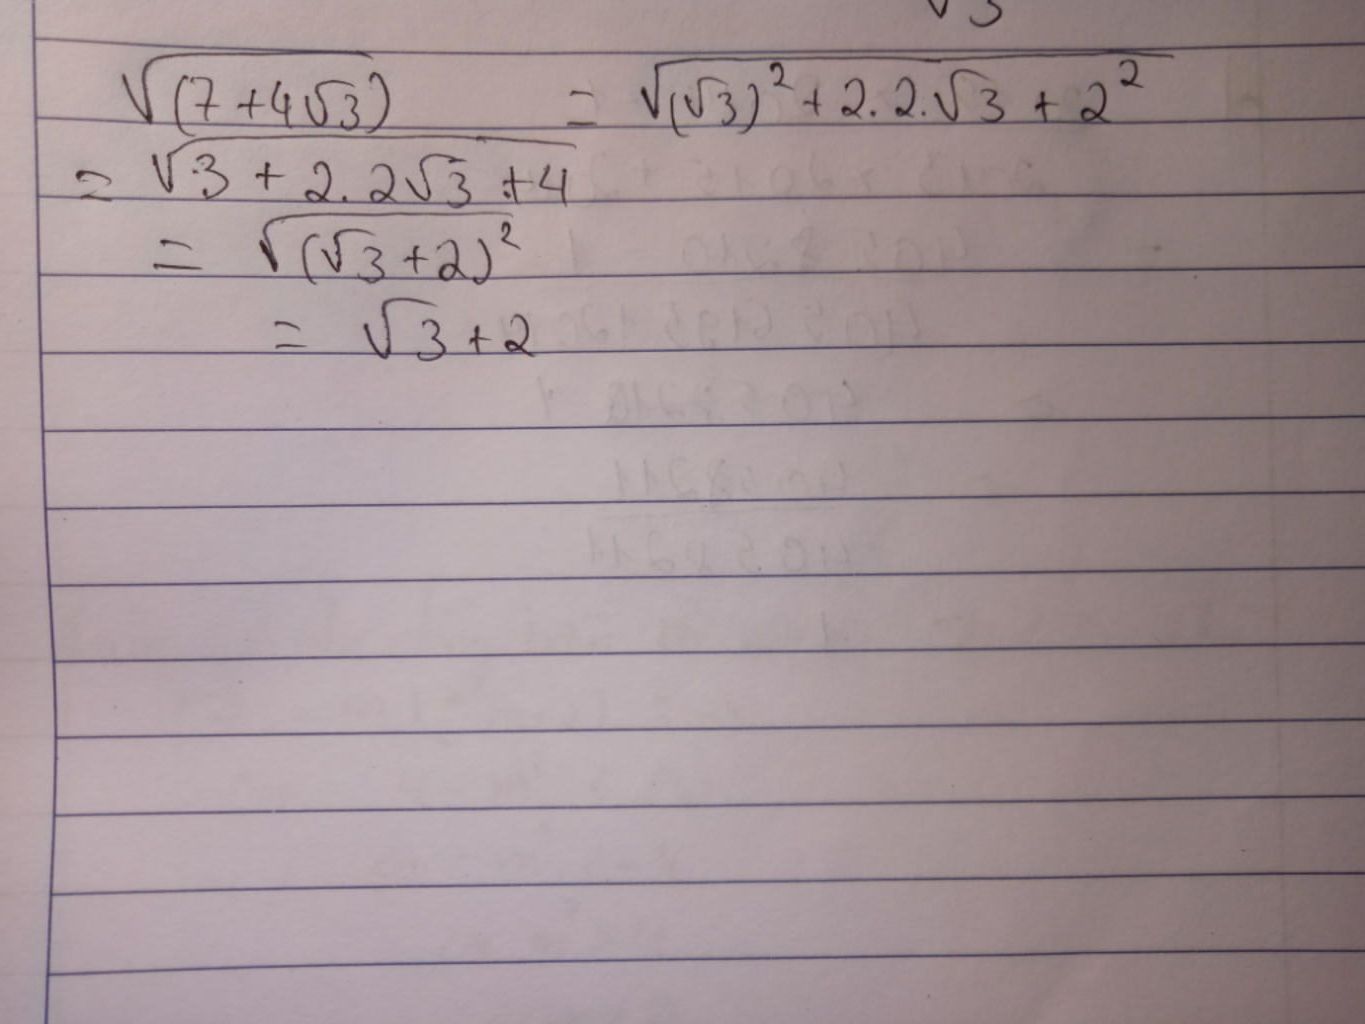 √3
√(7+4√3) = √(√3)² + 2.2.√3 + 2²
= √3 + 2.2√3 + 4
= √(√3+2)²
= √3+2